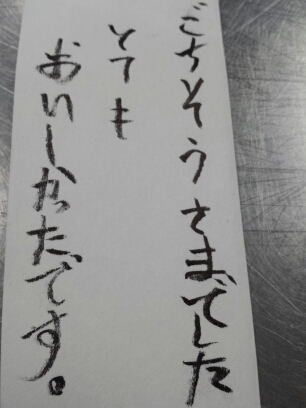 ごちそうさまでした
とても
おいしかったです。